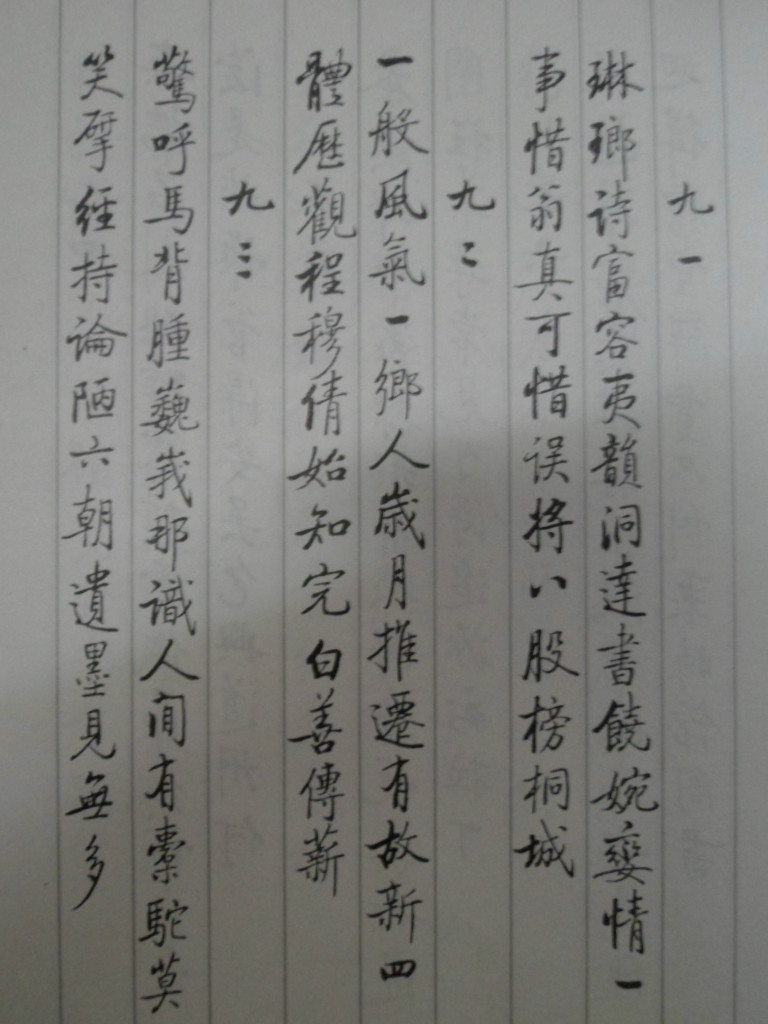 九一
琳瑯诗富容夷韻洞達書饒婉孌情一
事惜翁真可惜误將八股榜桐城
九二
一般風氣一鄉人歲月推遷有故新四
體歷觀程穆倩始知完白善傳薪
九三
驚呼馬背腫巍峩那識人间有橐駝莫
笑摩經持論陋六朝遺墨見無多